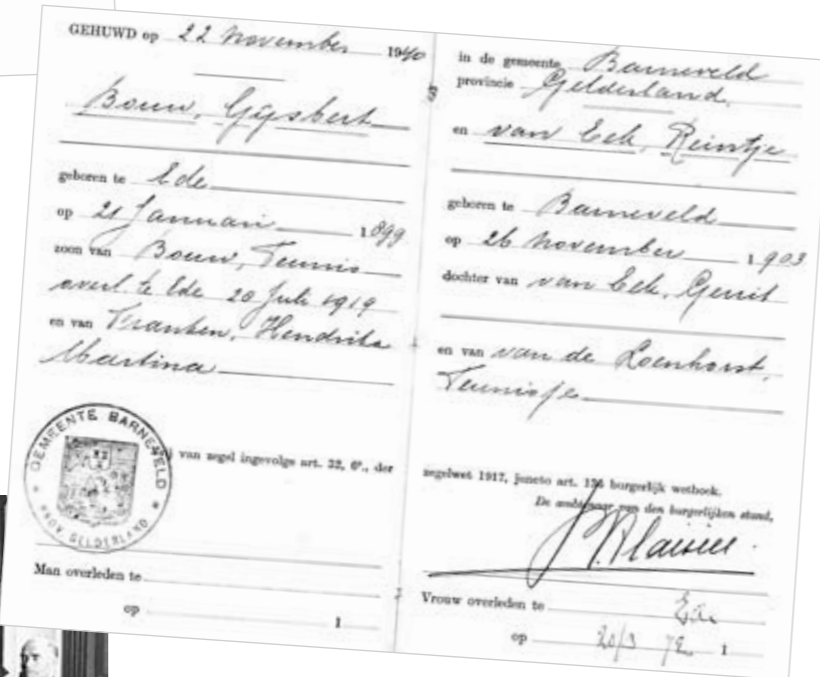 GEHUWD op 22 November 1940
Bouw, Gijsbert
geboren te Ede
op 21 Januari 1899
zoon van Bouw, Teunis
overl. te Ede 20 Juli 1919
en van Franken, Hendrika
Martina
GEMEENTE BARNEVELD
PROV. GELDERLAND
van zegel ingevolge art. 32, 6°., der
Man overleden te
op 1
in de gemeente Barneveld
provincie Gelderland,
en van Eck, Reintje
geboren te Barneveld
op 26 November 1903
dochter van van Eck, Gerrit
en van van de Loenhorst,
Teunisje
zegelwet 1917, juncto art. 136 burgerlijk wetboek.
De ambtenaar van den burgerlijken stand,
Vrouw overleden te Ede
op 20/3 72 1